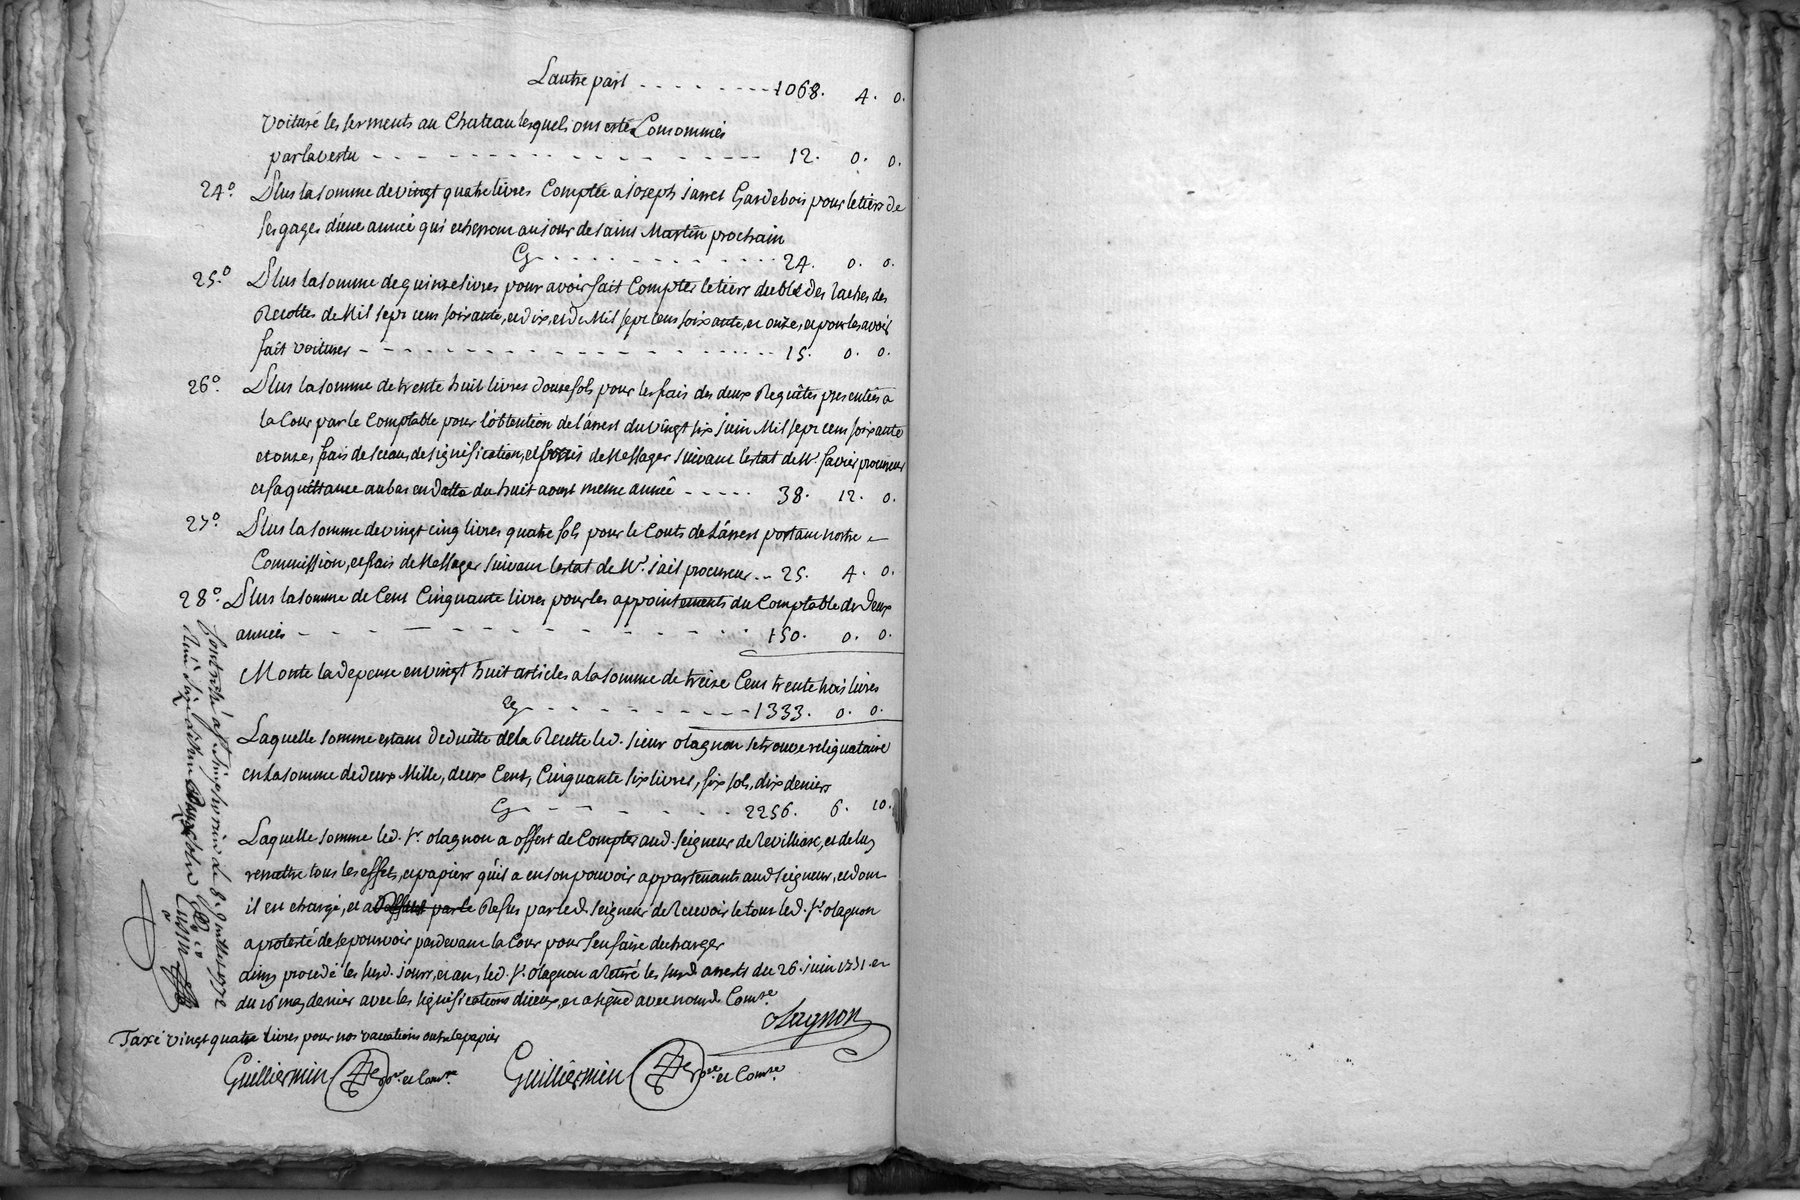 Lautre part - - - - - - - - 1068. 4. 0.
voituré les serments au Chateau lesquels ont esté Consommés
par la vestu - - - - - - - - 12. 0. 0.
24°. Plus la somme de vingt quatre livres Comptée a joseph Gardebois pour le tiers de
ses gages d'une année qui echerront au jour de saint Martin prochain
Cy - - - - - - - - 24. 0. 0.
25°. Plus la somme de quinze livres pour avoir fait Compter le tiers du blé des taches des
Recoltes de Mil sept cent soixante, et dix, et de Mil sept cent soixante, et onze, et pour les avoir
fait voiturer - - - - - - - - 15. 0. 0.
26°. Plus la somme de trente huit livres douse sols pour les frais des deux Requêtes presentées a
la Cour par le Comptable pour l'obtention de l'arrest du vingt six juin Mil sept cent soixante
et onze, frais de sceau, de signification, et frais de Messager suivant l'estat de Mr. favier procureur
et sa quittance au bas en datte du huit aoust meme année - - - - - 38. 12. 0.
27°. Plus la somme de vingt cinq livres quatre sols pour le Couts de L'arrest portant nostre
Commission, et frais de Messager suivant l'estat de Mr. procureur - - 25. 4. 0.
28°. Plus la somme de Cent Cinquante livres pour les appointements du Comptable de deux
années - - - - - - - - 150. 0. 0.
Monte la depense en vingt huit articles a la somme de treize Cent trente trois livres
Cy - - - - - - - - 1333. 0. 0.
Laquelle somme estant deduitte de la Recette led. sieur olagnon se trouve reliquataire
en la somme de deux Mille, deux Cent, Cinquante six livres, six sols, dix deniers
Cy - - - - - - - - 2256. 6. 10.
Laquelle somme led. sr. olagnon a offert de Compter aud. seigneur de Revilliasc, et de luy
remettre tous les effets, et papiers qu'il a en son pouvoir appartenants aud seigneur, et dont
il est chargé, et a Refus par led. seigneur de Recevoir le tout led. sr. olagnon
a protesté de se pourvoir pardevant la Cour pour s'en faire decharger
ainsy procedé les susd. jours, et an, led. sr. olagnon a Retiré les susd. arrests du 26. juin 1771. et
du 16 may dernier avec les significations d'iceux, et a signé avec nousd. Comre.
olagnon
Taxé vingt quatre livres pour nos vacations outre le papier
Guilliermin et Comre.
Guilliermin et Comre.
Controllé a le 8. juillet 1772